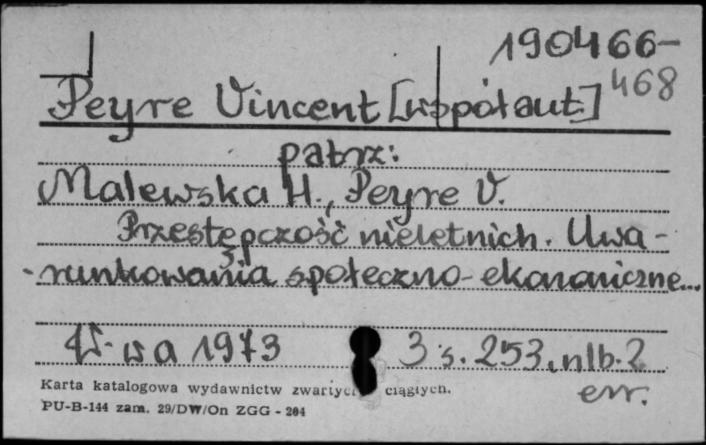 190466-
468
Peyre Vincent [współaut.]
patrz:
Malewska H., Peyre V.
Przestępczość nieletnich. Uwa-
-runkowania społeczno-ekonomiczne...
W-wa 1973 3 s. 253, nlb. 2
err.
Karta katalogowa wydawnictw zwartych ciągłych.
PU-B-144 zam. 29/DW/On ZGG - 204